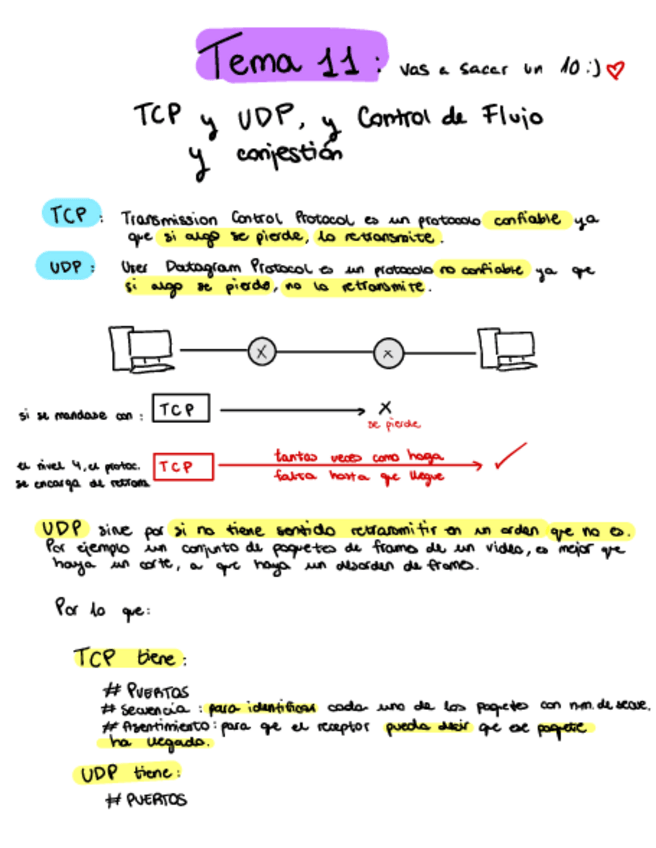 Tema 11 : vas a sacar un 10 :) ♡
TCP y UDP, y Control de Flujo
y conjestión
TCP : Transmission Control Protocol es un protocolo confiable ya
que si algo se pierde, lo retransmite.
UDP : User Datagram Protocol es un protocolo no confiable ya que
si algo se pierde, no lo retransmite.
X X
si se mandase con : TCP X
se pierde
el nivel 4, el protoc. TCP tantas veces como haga ✓
se encarga de retrans. falta hasta que llegue
UDP sirve por si no tiene sentido retransmitir en un orden que no es.
Por ejemplo un conjunto de paquetes de frames de un video, es mejor que
haya un corte, a que haya un desorden de frames.
Por lo que:
TCP tiene:
# PUERTOS
# Secuencia : para identificar cada uno de los paquetes con núm. de secue.
# Asentimiento : para que el receptor pueda decir que ese paquete
ha llegado.
UDP tiene:
# PUERTOS